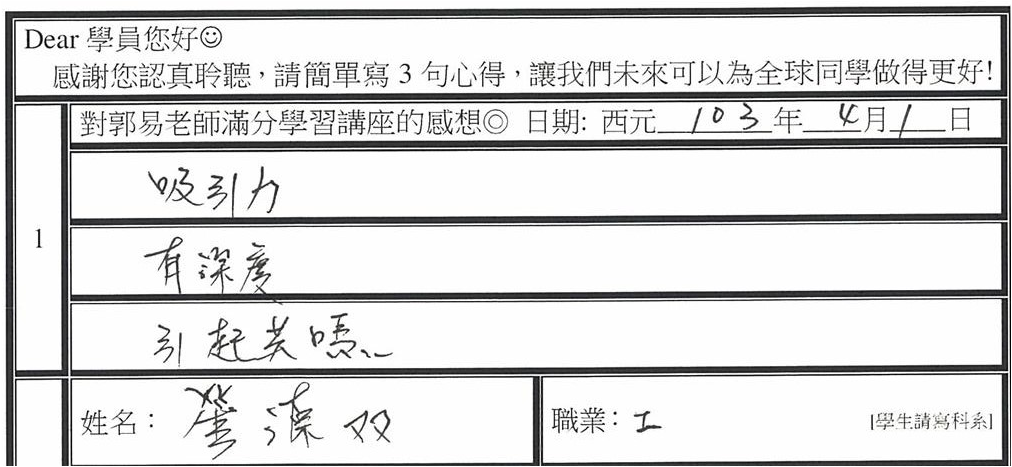 Dear 學員您好☺
感謝您認真聆聽，請簡單寫 3 句心得，讓我們未來可以為全球同學做得更好!
1
對郭易老師滿分學習講座的感想◎ 日期: 西元 103 年 4 月 1 日
吸引力
有深度
引起共鳴
姓名： 双
職業： 工 [學生請寫科系]